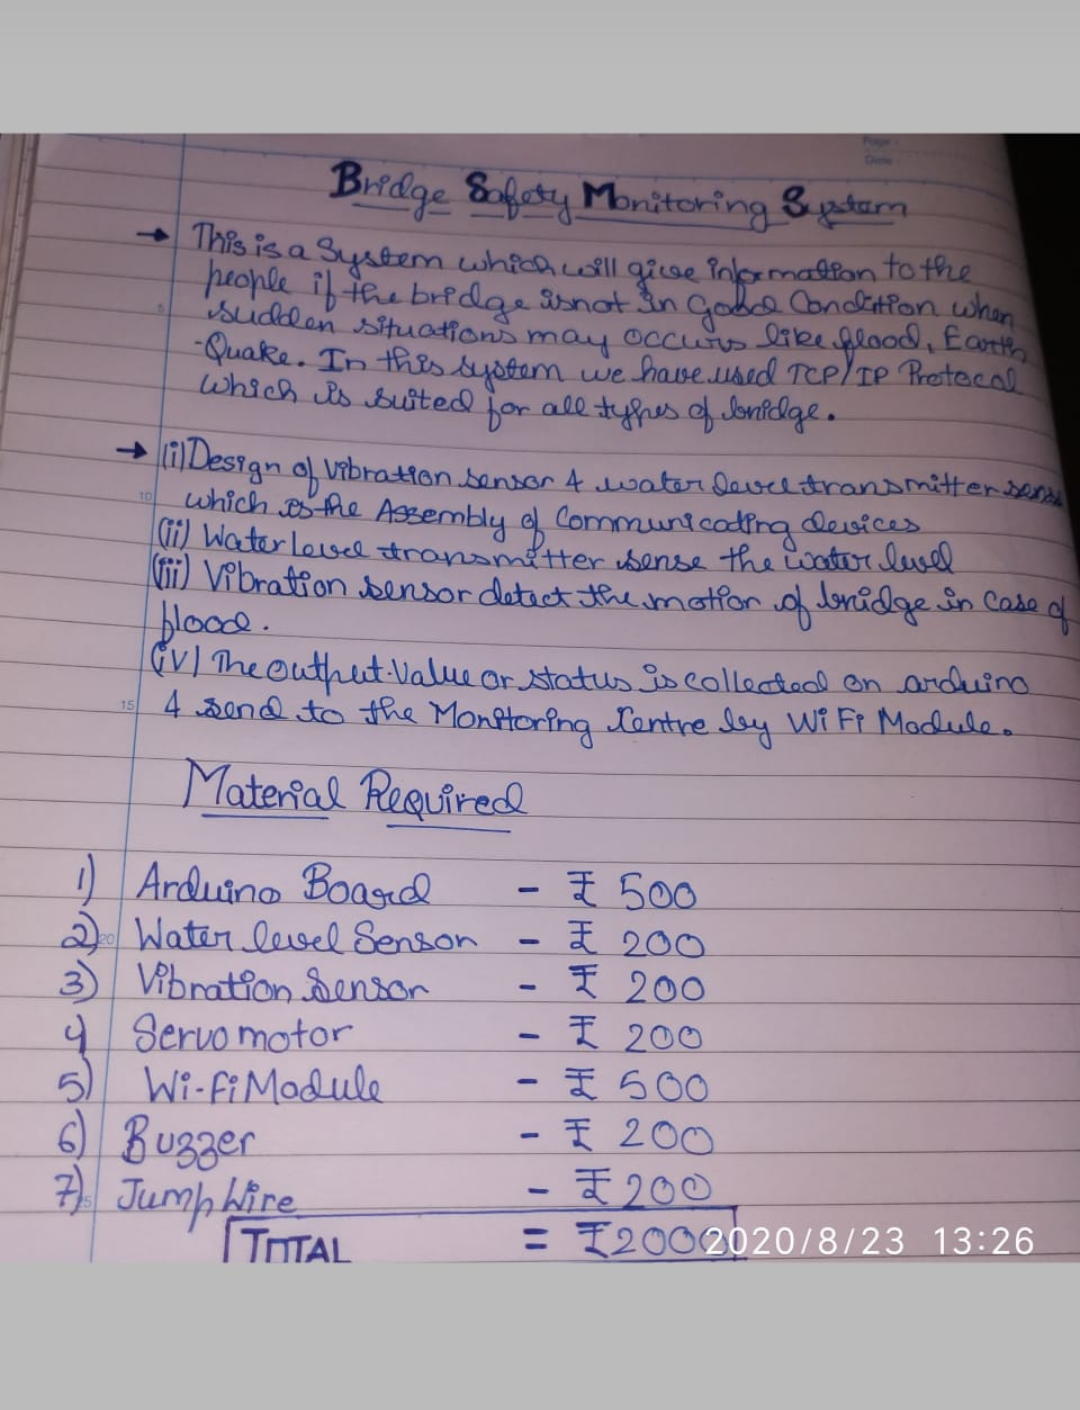 Page
Date
Bridge Safety Monitoring System
→ This is a System which will give information to the
people if the bridge is not in Good Condition when
sudden situations may occurs like flood, Earth
-Quake. In this system we have used TCP/IP Protocal
which is suited for all types of bridge.
→ (i) Design of Vibration sensor & water level transmitter
10 which is the Assembly of Communicating devices
(ii) Water level transmitter sense the water level
(iii) Vibration sensor detect the motion of bridge in case of
flood.
(iv) The output Value or status is collected on arduino
15 & send to the Monitoring Centre by WiFi Module.
Material Required
1) Arduino Board - ₹ 500
2) 20 Water level Sensor - ₹ 200
3) Vibration Sensor - ₹ 200
4) Servo motor - ₹ 200
5) Wi-Fi Module - ₹ 500
6) Buzzer - ₹ 200
7) Jump Wire - ₹ 200
TOTAL = ₹2000
2020/8/23 13:26